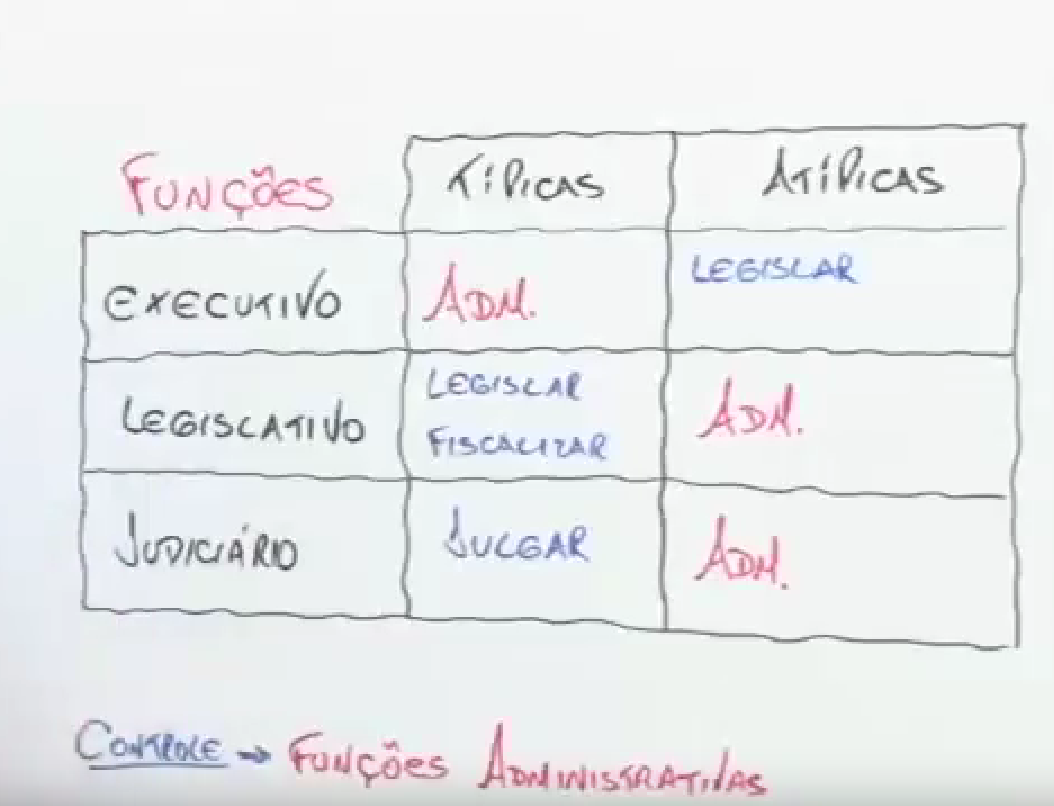 FUNÇÕES TÍPICAS ATÍPICAS
EXECUTIVO ADM. LEGISLAR
LEGISLATIVO LEGISLAR FISCALIZAR ADM.
JUDICIÁRIO JULGAR ADM.
CONTROLE → FUNÇÕES ADMINISTRATIVAS